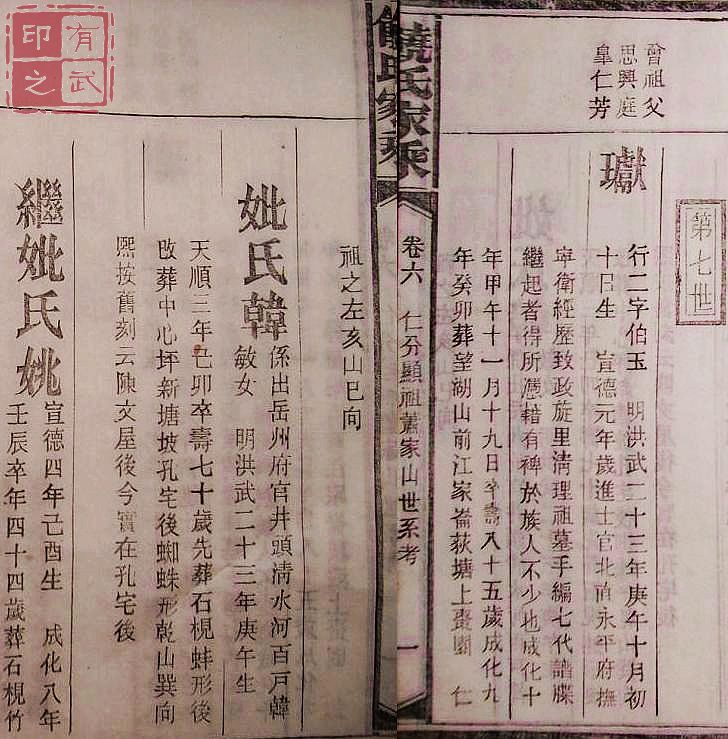 曾祖父
思興庭
臯仁芳
第七世
瓛
行二字伯玉　明洪武二十三年庚午十月初
十日生　宣德元年歲進士官北直永平府撫
寧衛經歷致政旋里淸理祖墓手編七代譜牒
繼起者得所憑藉有裨於族人不少也成化十
年甲午十一月十九日卒壽八十五歲成化九
年癸卯葬望湖山前江家崙荻塘上棗園　仁
饒氏家乘
卷六　仁分顯祖蕭家山世系考　一
祖之左亥山巳向
妣氏韓
係出岳州府官井頭淸水河百戸韓
敏女　明洪武二十三年庚午生
天順三年己卯卒壽七十歲先葬石梘蚌形後
改葬中心坪新塘坡孔宅後蜘蛛形乾山巽向
熙按舊刻云陳文屋後今實在孔宅後
繼妣氏姚
宣德四年己酉生　成化八年
壬辰卒年四十四歲葬石梘竹
有武
印之